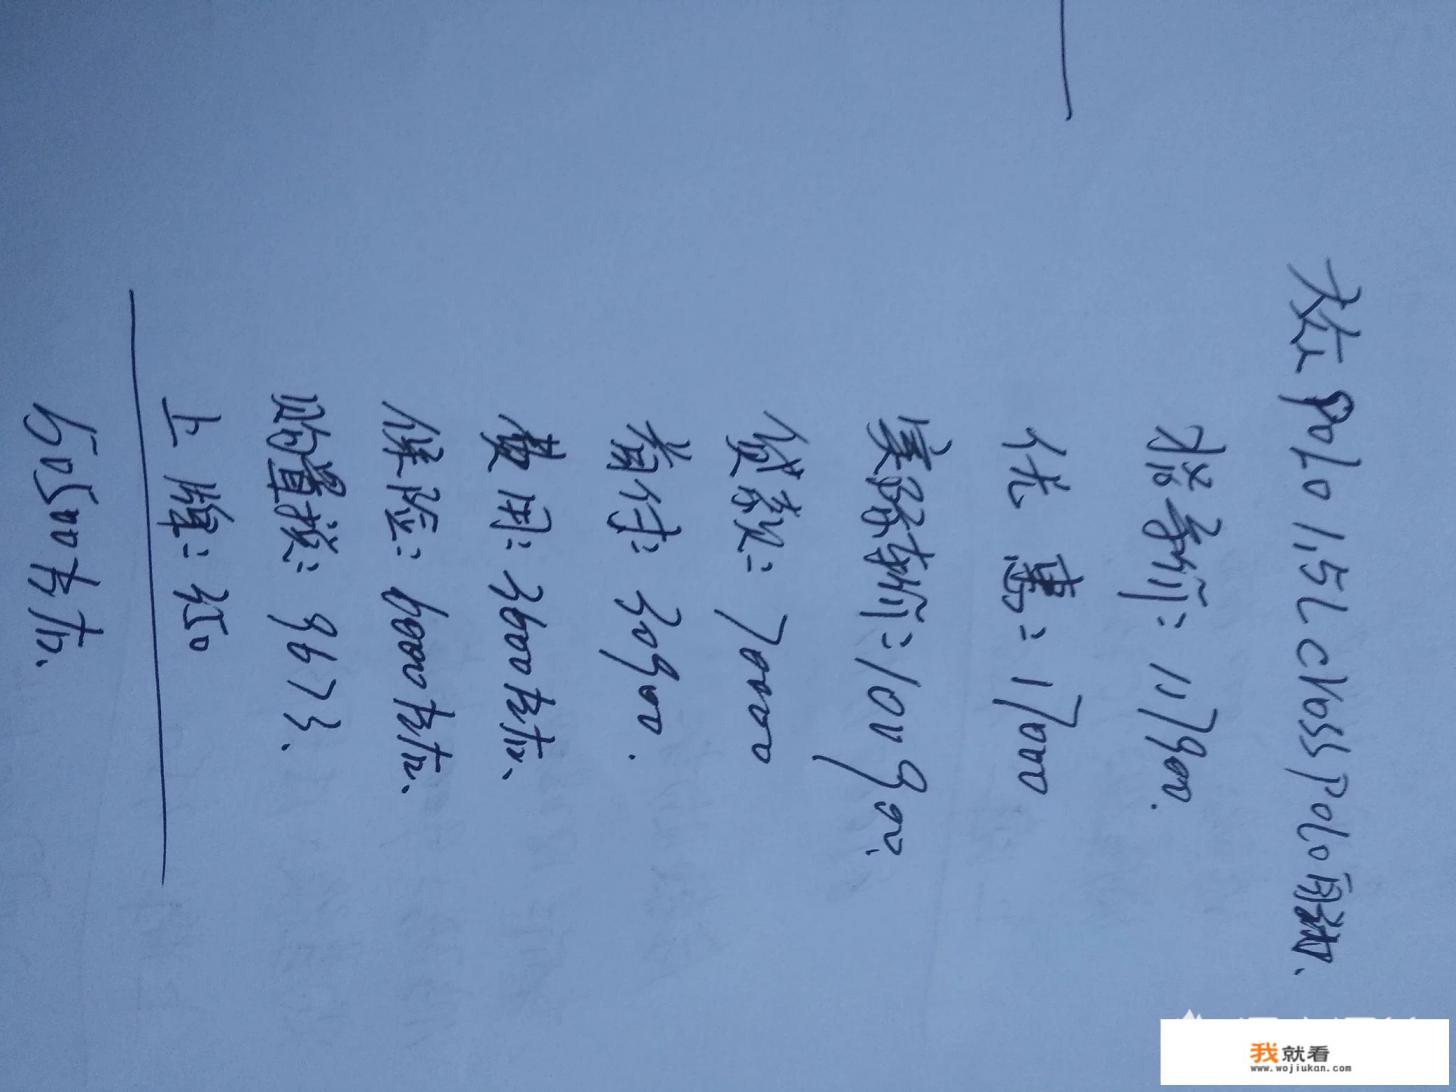 大众 polo 1.5L cross polo 自动.
指导价：117900.
优 惠：17000
实际车价：100900.
贷款：70000
首付：30900.
费用：3600左右.
保险：6000左右.
购置税：8673.
上牌：350
50500左右.
我就看
www.wojiukan.com